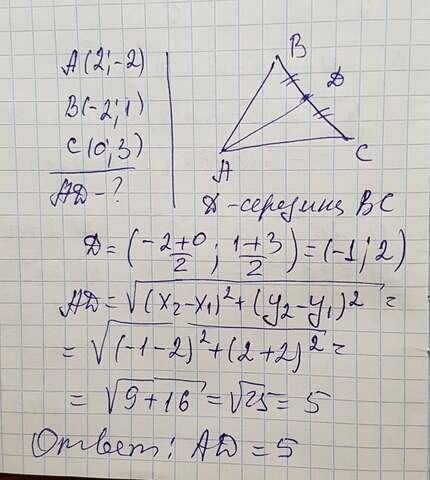 A(2;-2)
B(-2;1)
C(0;3)
AD-?
B
D
A
C
D-середина BC
D=(-2+0/2; 1+3/2)=(-1;2)
AD=√(x₂-x₁)²+(y₂-y₁)²=
=√(-1-2)²+(2+2)²=
=√9+16=√25=5
Ответ: AD=5